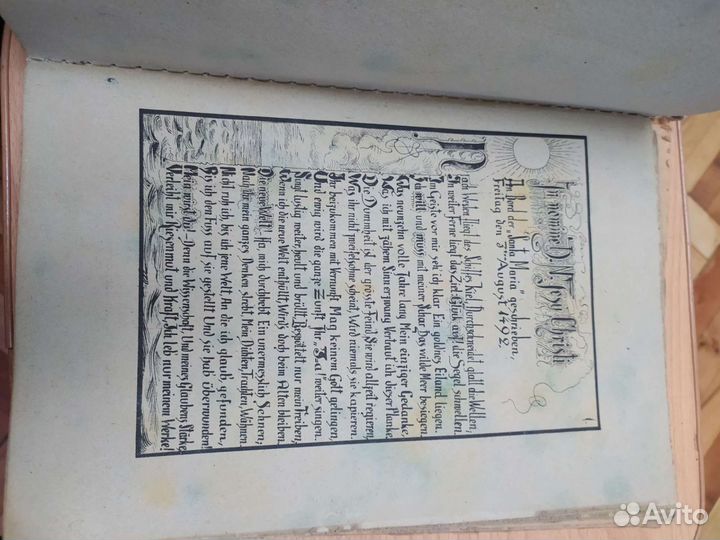 In nomine D. N. Jesu Christi
An Bord der „Santa Maria“ geschrieben,
Freitag den 3ten August 1492.
Nach Westen fliegt des Schiffes Kiel, Durchschneidet glatt die Wellen,
In weiter Ferne liegt das Ziel, Glück auf! die Segel schwellen
Im Geiste vor mir seh' ich klar Ein goldnes Eiland liegen.
Ich will und muss mit meiner Schar Das wilde Meer besiegen.
Was neunzehn volle Jahre lang Mein einziger Gedanke,
Was ich mit zähem Sinn erzwang Vertraut ich dieser Planke.
Die Dummheit ist der grösste Feind Sie wird allzeit regieren,
Was ihr nicht zweifelsohne scheint, Wird niemals sie kapieren.
Ihr beizukommen mit Vernunft Mag keinem Gott gelingen,
Und ewig wird die ganze Zunft Ihr „I a!“ weiter singen.
Singt lustig weiter, heult und brüllt, Begeifert nur mein Treiben,
Wenn ich die neue Welt enthüllt, Wird's doch beim Alten bleiben.
Die neue Welt! Ha mich durchbebt Ein unermesslich Sehnen,
Nach ihr mein ganzes Denken strebt, Mein Dichten, Trachten, Wähnen.
Nicht ruh ich, bis ich jene Welt, An die ich glaub, gefunden,
Bis ich den Fuss auf sie gestellt Und sie hab überwunden!
Mein wird sie! Denn die Wissenschaft, Und meines Glaubens Stärke,
Verleiht mir Riesenmut und Kraft, Ich leb nur meinem Werke!
1
Avito